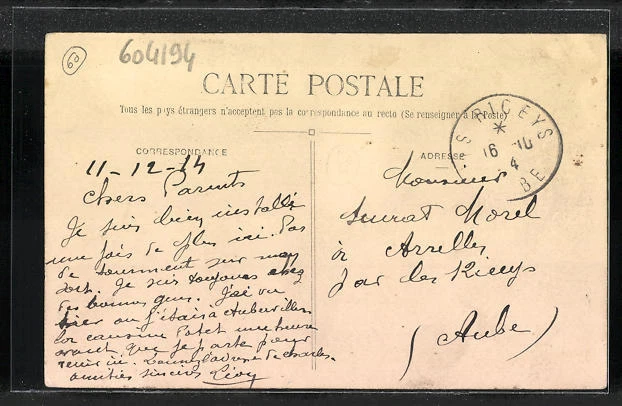 60
604194
CARTE POSTALE
Tous les pays étrangers n'acceptent pas la correspondance au recto (Se renseigner à la Poste)
CORRESPONDANCE
ADRESSE
RICEYS
16 -10
4
BE
11-12-14
Chers Parents
Je suis bien installé
une fois de plus ici. Pas
de tourment sur mon
sort. Je suis toujours chez
des bonnes gens. J'ai vu
hier où j'étais à Aubervilliers
la cousine Potet une heure
avant que je parte pour
venir ici. l'adresse de Charles.
amitiés sincères Léon
Monsieur
Morel
à Arrelles
par les Riceys
(Aube)